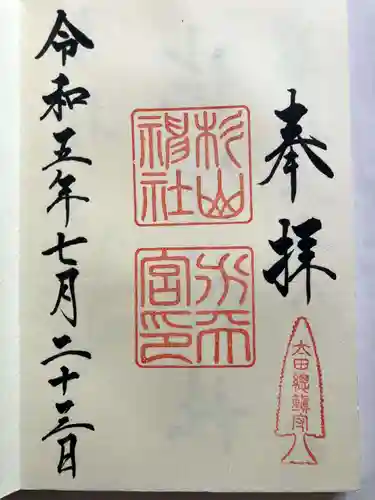 奉拝
太田總鎮守
杉山
神社
水天
宮印
令和五年七月二十三日